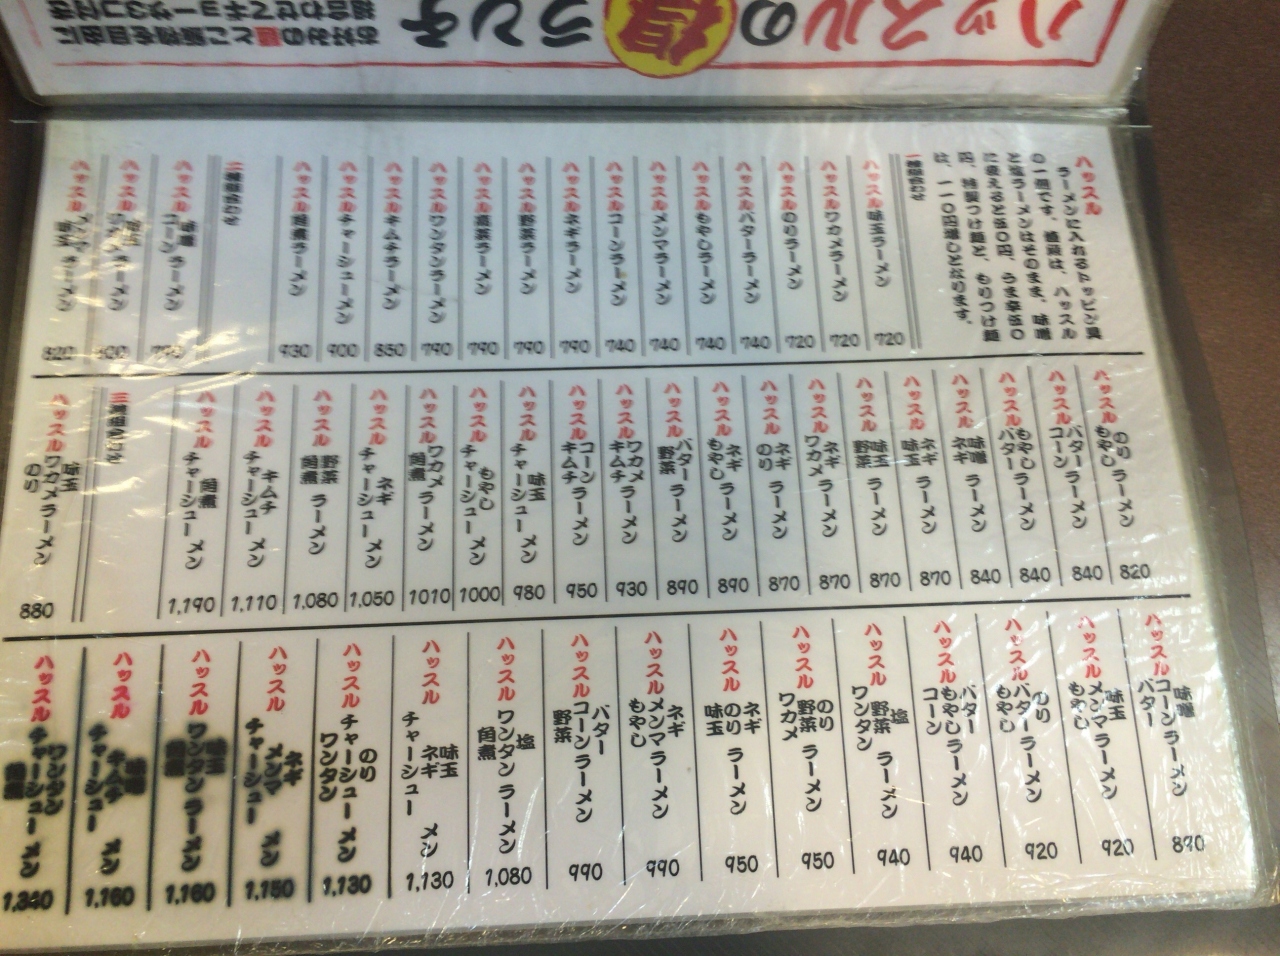 ハッスルの得ランチ
お好みの麺とご飯物を自由に
組合わせてギョーザ3コ付き
ハッスル
ラーメンに入れるトッピン具
の一覧です。
と塩ラーメンはそのまま、味噌
に変えると
は、一一〇円増しとなります。
一種組合わせ
ハッスル味玉ラーメン 720
ハッスルワカメラーメン 720
ハッスルのりラーメン 720
ハッスルバターラーメン 740
ハッスルもやしラーメン 740
ハッスルメンマラーメン 740
ハッスルコーンラーメン 740
ハッスルネギラーメン 790
ハッスル野菜ラーメン 790
ハッスル ラーメン 790
ハッスルワンタンラーメン 790
ハッスルキムチラーメン 850
ハッスルチャーシューメン 900
ハッスル角煮ラーメン 930
二種組合わせ
ハッスル コーンラーメン 790
ハッスル ラーメン 800
ハッスル ラーメン 820
ハッスルのりもやしラーメン 820
ハッスルバターコーンラーメン 840
ハッスルもやしバターラーメン 840
ハッスル味噌ネギラーメン 840
ハッスルネギ味玉ラーメン 870
ハッスル味玉野菜ラーメン 870
ハッスルネギワカメラーメン 870
ハッスルネギのりラーメン 870
ハッスルネギもやしラーメン 890
ハッスルバター野菜ラーメン 890
ハッスルワカメキムチラーメン 930
ハッスルコーンキムチラーメン 950
ハッスル味玉チャーシューメン 980
ハッスルもやしチャーシューメン 1000
ハッスルワカメ角煮ラーメン 1010
ハッスルネギチャーシューメン 1,050
ハッスル野菜角煮ラーメン 1,080
ハッスルキムチチャーシューメン 1,110
ハッスル角煮チャーシューメン 1,190
三種組合わせ
ハッスル味玉ワカメのりラーメン 880
ハッスル味噌コーンバターラーメン 890
ハッスル味玉メンマもやしラーメン 920
ハッスルのりバターもやしラーメン 920
ハッスルバターもやしコーンラーメン 940
ハッスル塩野菜ワンタンラーメン 940
ハッスルのり野菜ワカメラーメン 950
ハッスルネギのり味玉ラーメン 950
ハッスルネギメンマもやしラーメン 990
ハッスルバターコーン野菜ラーメン 990
ハッスル塩ワンタン角煮ラーメン 1,080
ハッスル味玉ネギチャーシューメン 1,130
ハッスルのりチャーシューワンタンメン 1,130
ハッスルネギメンマチャーシューメン 1,150
ハッスル味玉ワンタン角煮ラーメン 1,160
ハッスル味噌キムチチャーシューメン 1,160
ハッスルワンタンチャーシュー角煮メン 1,340